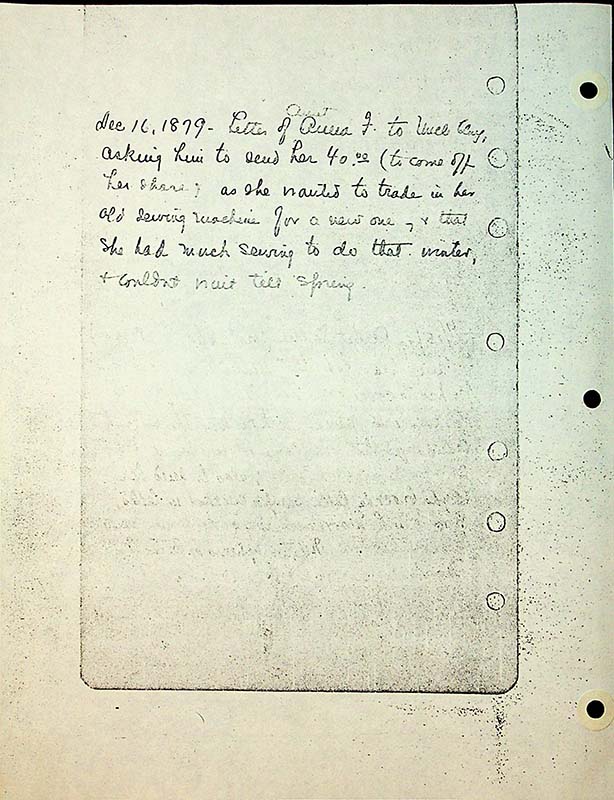 Aunt
Dec 16, 1879 - Letter of Anna F. to Uncle
asking him to send her 40.00 (to come off
her share) as she wanted to trade in her
old sewing machine for a new one, & that
she had much sewing to do that winter,
& couldnt wait till spring.